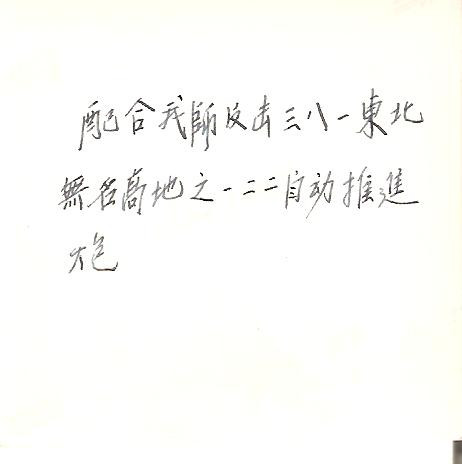 配合我師反击三八一東北
無名高地之一二二自动推進
炮